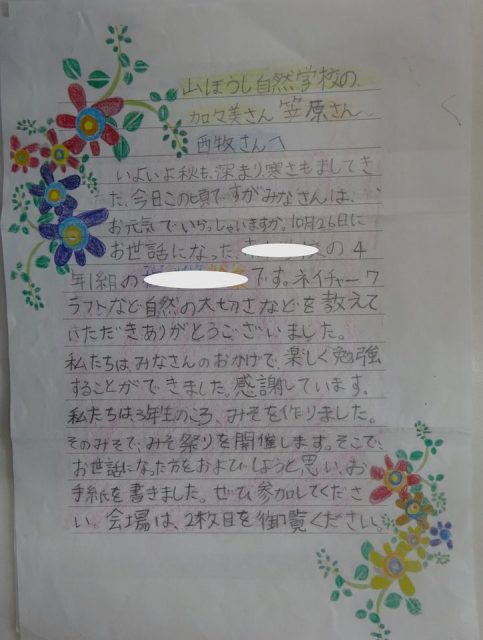 山ぼうし自然学校の、
加々美さん 笠原さん、
西牧さんへ
いよいよ秋も、深まり、寒さもましてき
た、今日この頃ですがみなさんは、
お元気でいらっしゃいますか。10月26日に
お世話になった、の4
年1組のです。ネイチャーク
ラフトなど自然の大切さなどを教えて
いただきありがとうございました。
私たちは、みなさんのおかげで、楽しく勉強
することができました。感謝しています。
私たちは、3年生のころ、みそを作りました。
そのみそで、みそ祭りを開催します。そこで、
お世話になった方をおよびしようと思い、お
手紙を書きました。ぜひ、参加してくださ
い。会場は、2枚目を御覧ください。